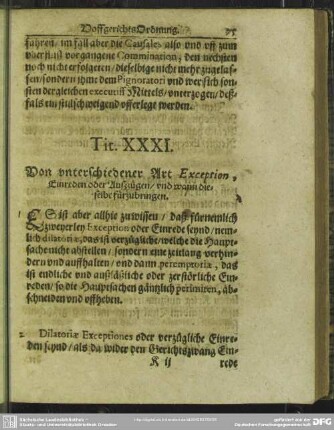 Hoffgerichts Ordnung. 95
fahren, im fall aber die Causales also vnd vff zum
vberfluß vorgangene Commination, den nechsten
noch nicht erfolgeten / dieselbige nicht mehr zugelas-
sen / sondern jhme dem Pignoratori vnd wer sich son-
sten dergleichen executiff Mittels / vnterzogen / deß-
fals ein stilschweigend offerlegt werden.
Tit. XXXI.
Von vnterschiedener Art Exception,
Einreden oder Außzügen / vnd wann die-
selbe fürzubringen.
1 ES ist aber allhie zuwissen / daß fürnemlich
zweyerley Exception oder Einrede seynd / nem-
lich dilatoriæ, das ist verzügliche / welche die Haupt-
sache nicht abstellen / sondern eine zeitlang verhin-
dern vnd auffhalten / vnd dann peremptoriæ, das
ist endliche vnd außläßliche oder zerstörliche Ein-
reden / so die Hauptsachen gäntzlich perimiren, ab-
schneiden vnd offheben.
2 Dilatoriæ Exceptiones oder verzügliche Einre-
den seynd / als da wider den Gerichtszwang Ein-
K ij rede